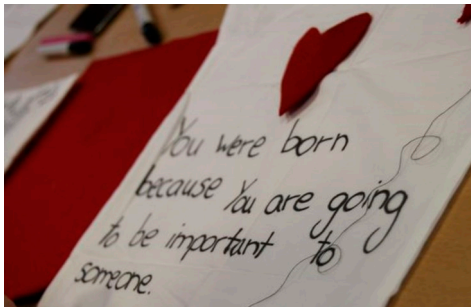 You were born
because You are going
to be important to
someone.